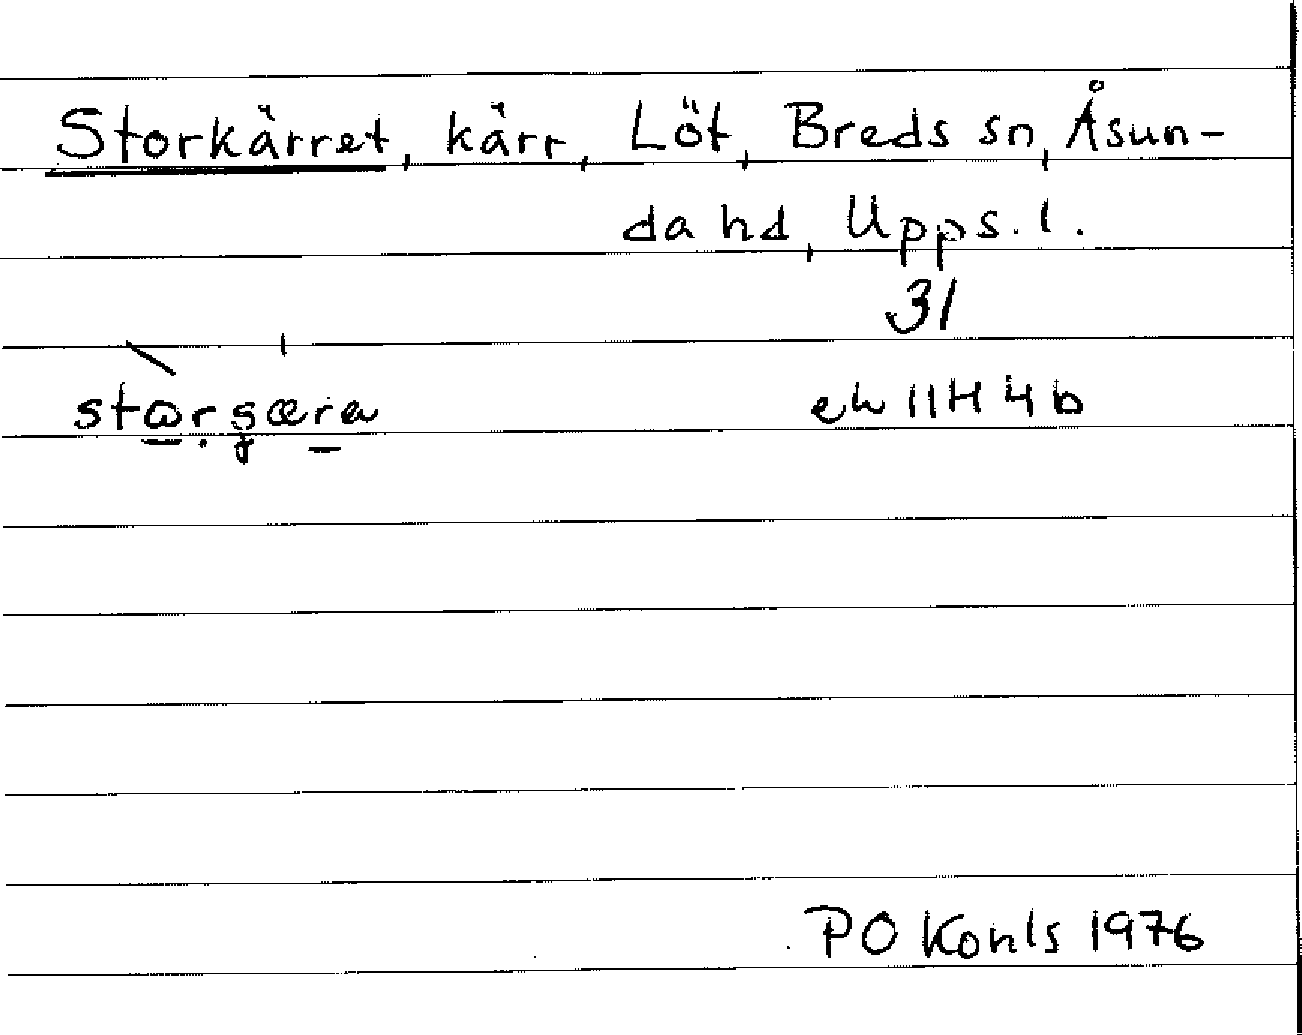 Storkärret, kärr, Löt, Breds sn, Åsun-
da hd, Upps. l.
31
ek 11H 4b
PO Konls 1976